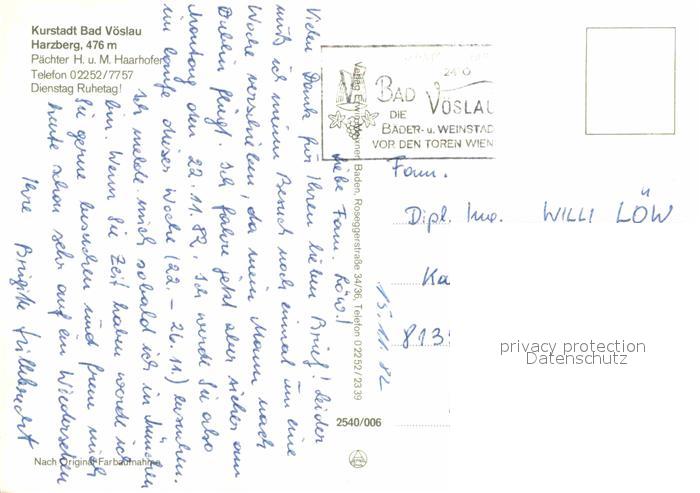 Kurstadt Bad Vöslau
Harzberg, 476 m
Pächter H. u. M. Haarhofer
Telefon 0 22 52 / 77 57
Dienstag Ruhetag!
15. 11. 82
Liebe Fam. Löw!
Vielen Dank für Ihren lieben Brief! Leider
muß ich meinen Besuch noch einmal um eine
Woche verschieben, da mein Mann nach
Dublin fliegt. Ich fahre jetzt aber sicher am
Montag den 22.11.82. Ich werde Sie also
im Laufe dieser Woche (22. – 26. 11.) besuchen.
Ich melde mich sobald ich in München
bin. Wenn Sie Zeit haben werde ich
Sie gerne besuchen und freue mich
heute schon sehr auf ein Wiedersehen
Ihre Brigitte
Nach Original-Farbaufnahme
Baden, Roseggerstraße 34/36, Telefon 0 22 52 / 23 39
2540/006
BAD
VÖSLAU
DIE
BADER- u. WEINSTAD
VOR DEN TOREN WIEN
Fam.
Dipl. Ing. WILLI LÖW
Ka
813
privacy protection
Datenschutz